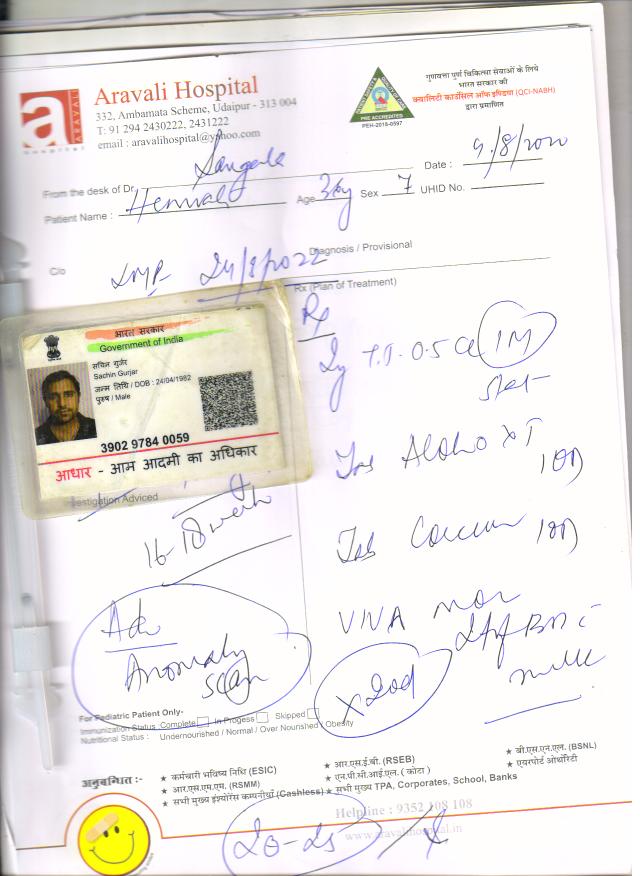 Aravali Hospital
332, Ambamata Scheme, Udaipur - 313 004
T: 91 294 2430222, 2431222
email : aravalihospital@yahoo.com
a
ARAVALI
hospital
PRE ACCREDITED
PEH-2018-0597
गुणवत्ता पूर्ण चिकित्सा सेवाओं के लिये
भारत सरकार की
क्वालिटी काउंसिल ऑफ इण्डिया (QCI-NABH)
द्वारा प्रमाणित
From the desk of Dr.
Date :
Patient Name :
Age Sex UHID No.
C/o
LMP 24/3/2022
Diagnosis / Provisional
Rx (Plan of Treatment)
Rx
भारत सरकार
Government of India
सचिन गुर्जर
Sachin Gurjar
जन्म तिथि / DOB : 24/04/1982
पुरुष / Male
3902 9784 0059
आधार - आम आदमी का अधिकार
Inj T.T. 0.5 IM
stat
Tab
1 OD
Investigation Adviced
16-18 week
Tab 1 OD
Adv
Anomaly
scan
VIVA
milk
x 20d
For Pediatric Patient Only-
Immunization Status Complete In Progess Skipped
Nutritional Status : Undernourished / Normal / Over Nourished / Obesity
अनुबन्धित :-
★ कर्मचारी भविष्य निधि (ESIC) ★ आर.एस.ई.बी. (RSEB) ★ बी.एस.एन.एल. (BSNL)
★ आर.एस.एम.एम. (RSMM) ★ एन.पी.सी.आई.एल. ( कोटा ) ★ एयरपोर्ट ऑथोरिटी
★ सभी मुख्य इंश्योरेंस कम्पनीयाँ (Cashless) ★ सभी मुख्य TPA, Corporates, School, Banks
Helpline : 9352 108 108
www.aravalihospital.in
20-25